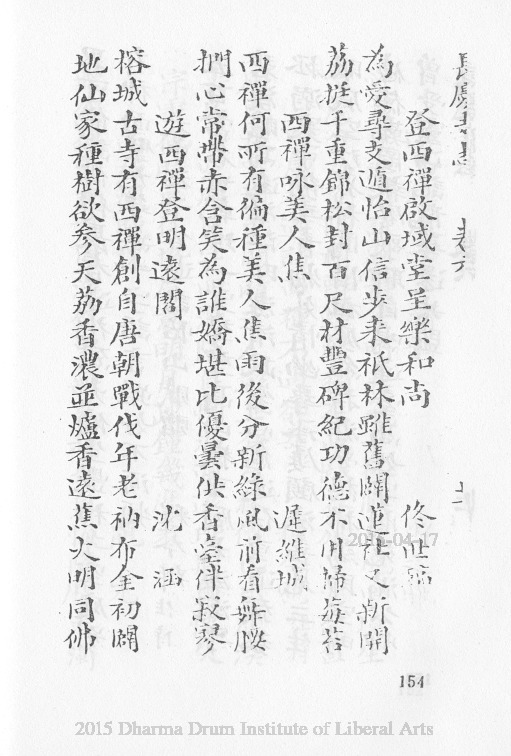 長慶寺志 卷六 十一
登西禪啟域堂呈樂和尚 佟世
為愛尋支遁怡山信步來祇林雖舊闢蓮社又新開
荔挺千重錦松封百尺材豐碑紀功德不用歸苺苔
西禪咏美人焦 遲維城
西禪何所有徧種美人焦雨後分新綠風前看舞腰
捫心常帶赤含笑為誰嬌堪比優曇供香臺伴寂寥
遊西禪登明遠閣 沈涵
榕城古寺有西禪創自唐朝戰伐年老衲布金初闢
地仙家種樹欲参天荔香濃並爐香遠蕉火明同佛
154
2015-04-17
2015 Dharma Drum Institute of Liberal Arts